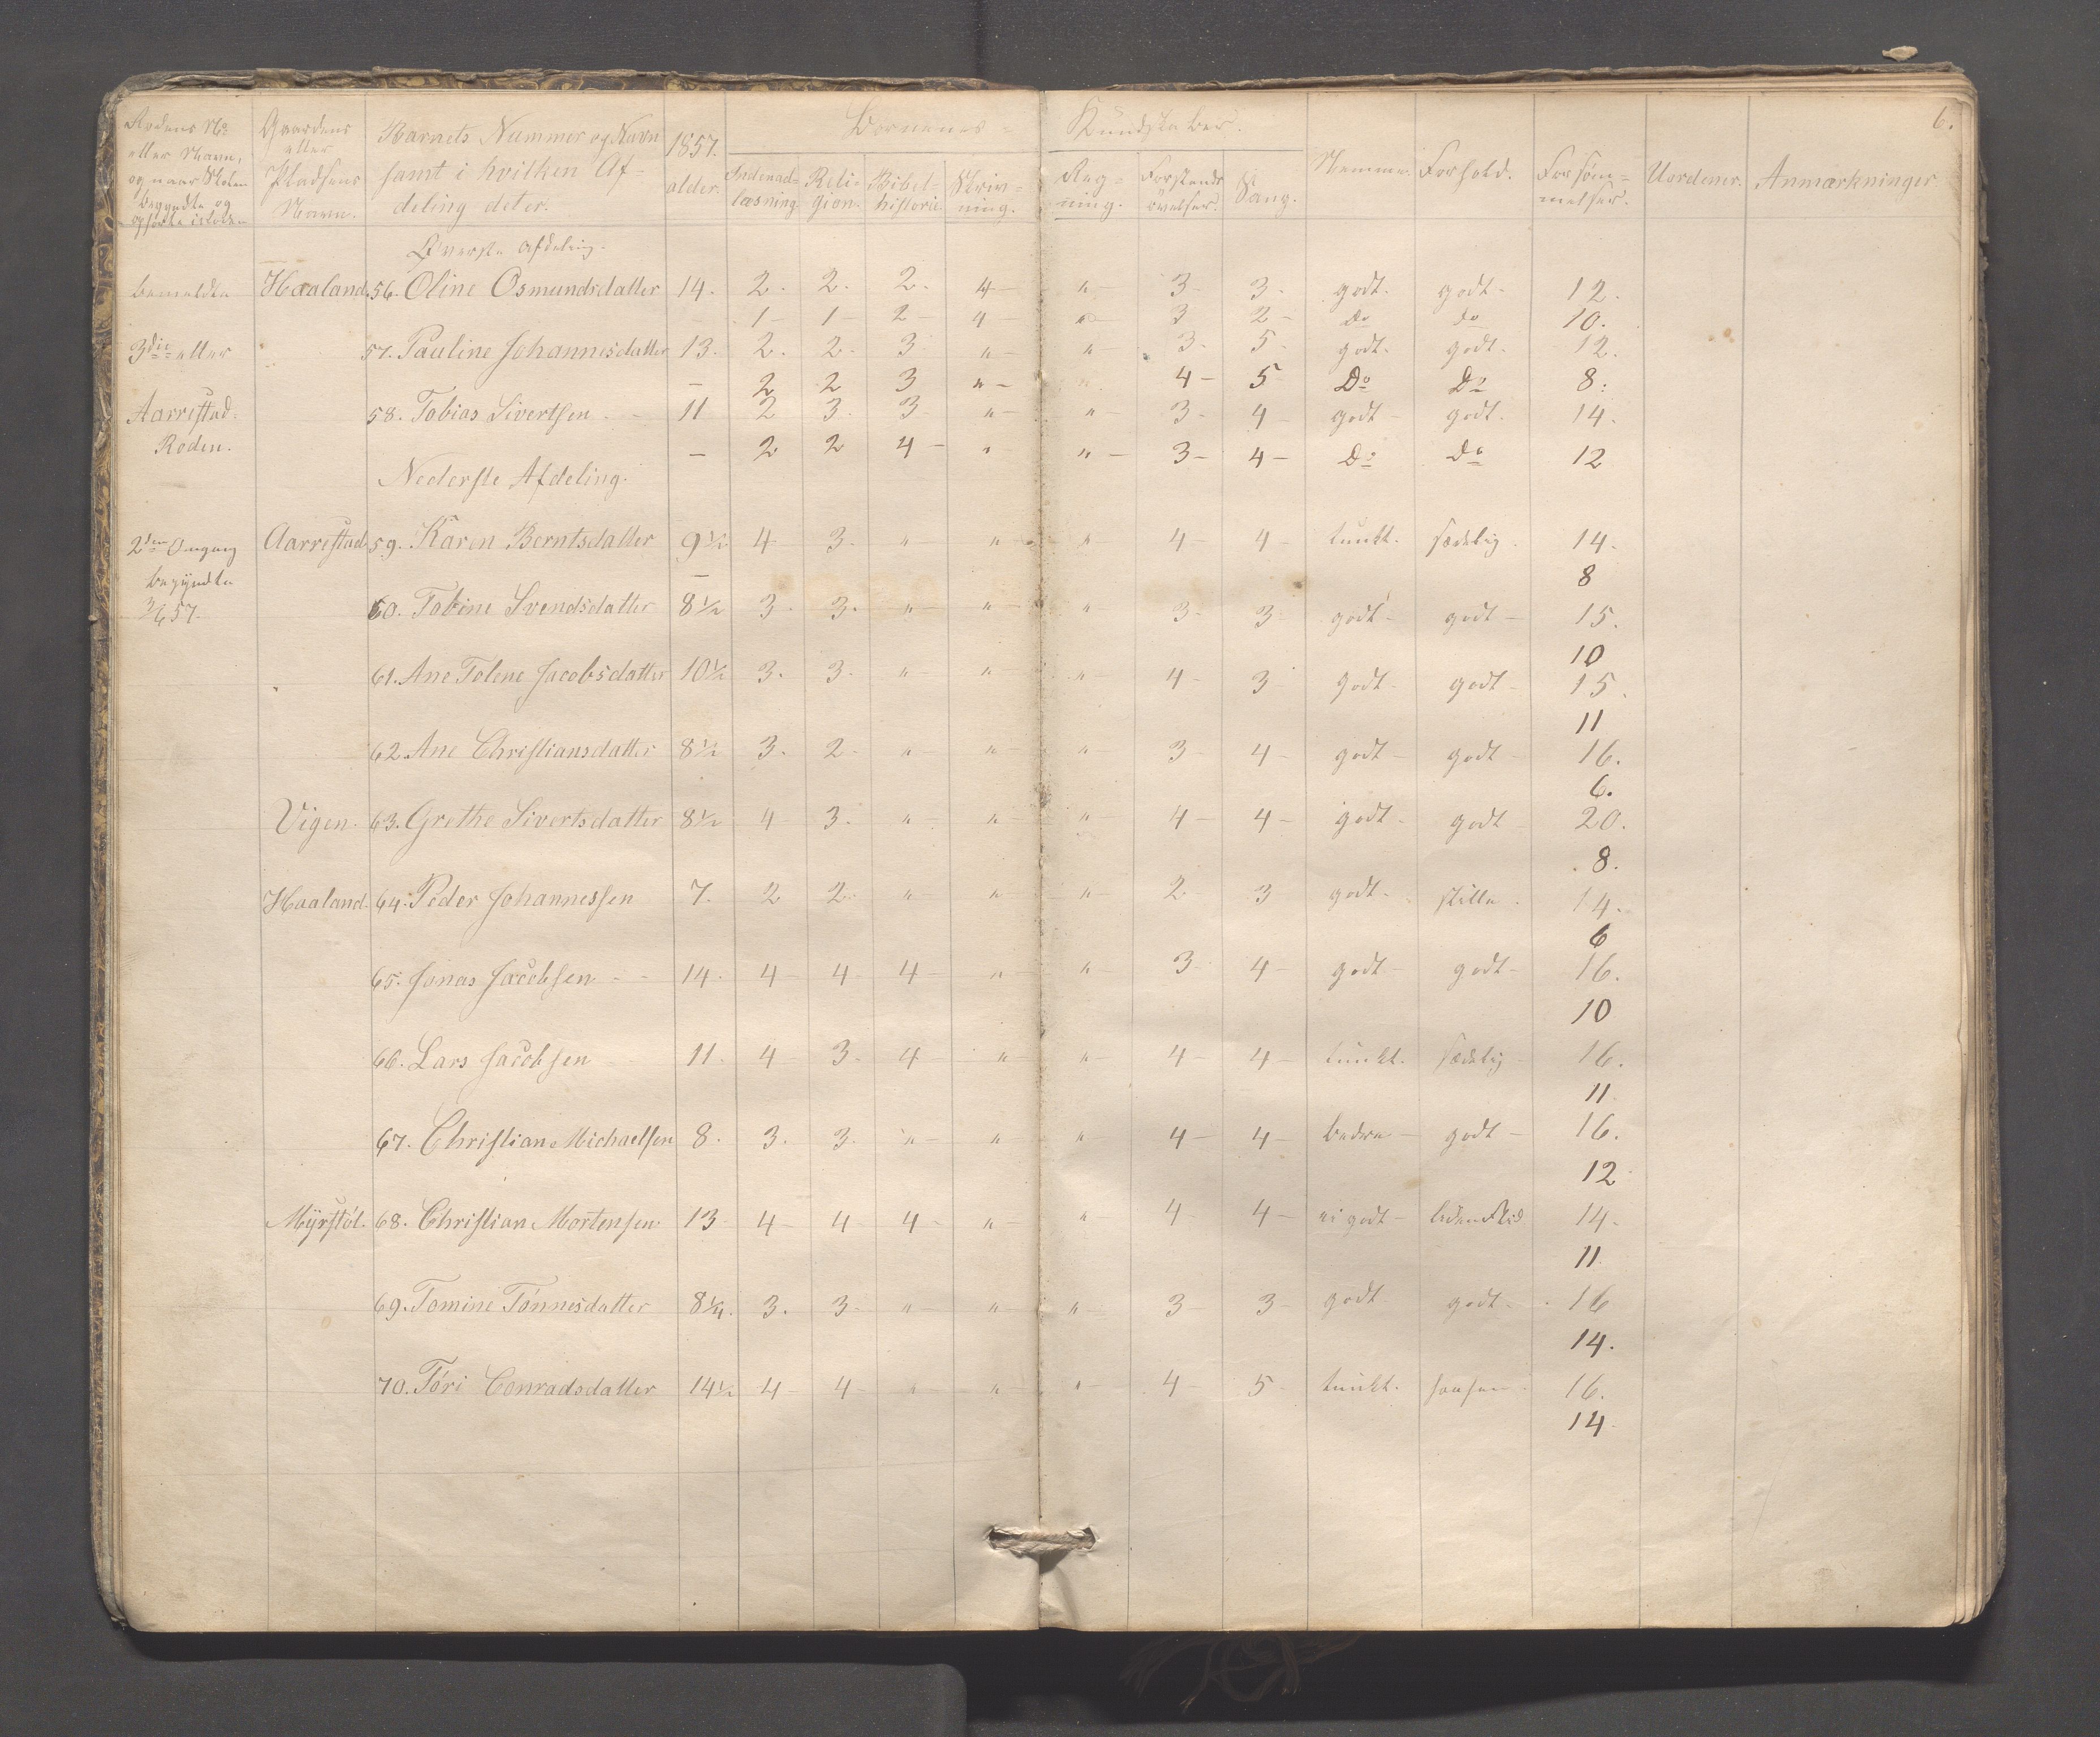 6.
Rodens No
eller Navn,
og naar Skolen
begyndte og
ophørte i
Gaardens
eller
Pladsens
Navn.
Barnets Nummer og Navn
samt i hvilken Af-
deling det er.
1857.
alder.
Børnenes Kundskaber.
Indenad-
læsning.
Reli-
gion.
Bibel-
historie.
Skriv-
ning.
Reg-
ning.
Forstands
øvelser.
Sang.
Nemme. Forhold.
Forsøm-
melser.
Uordener. Anmærkninger
Øverste Afdeling.
bemeldte Haaland. 56. Oline Osmundsdatter 14. 2. 2. 2. 4 — " — 3 — 3 — godt. godt — 12.
1 — 1 — 2 — 4 — " — 3 2 — Do Do 10.
3die eller 57. Pauline Johannesdatter 13. 2. 2. 3 " — " — 3. 5 — godt. godt. 12.
— 2 2 3 " — " 4 — 5 Do Do 8.
Aarrestad- 58. Tobias Sivertsen — 11 2 3. 3 " — " — 3 — 4 godt — godt. 14.
Roden. — 2 2 4 — " " — 3 — 4 — Do Do 12
Nederste Afdeling.
2den Omgang Aarrestad 59. Karen Berntsdatter 9½ 4 3. " — " " 4 — 4 — tungt. sædelig. 14.
begyndte 8
3/6 57. 60. Tobine Svendsdatter 8½ 3. 3. " — " — " 3 — 3 godt — godt — 15.
10
61. Ane Tolene Jacobsdatter 10½ 3. 3. " — " — " — 4 — 3 godt — godt — 15.
11
62. Ane Christiansdatter 8½ 3. 2 — " — " " 3 4 — godt — godt 16.
6.
Vigen. 63. Grethe Sivertsdatter 8½ 4 3. " — " " 4 — 4 — godt — godt 20.
8.
Haaland. 64. Peder Johannessen 7. 2 2 " — " " — 2 3 godt — stille. 14.
6
65. Jonas Jacobsen — 14. 4 4 — 4 " — " — 3 4 — godt — godt — 16.
10
66. Lars Jacobsen 11. 4 3. 4 — " — " 4 — 4 — tungt. sædelig — 16.
11
67. Christian Michaelsen 8. 3. 3. " — " " 4 — 4 — bedre — godt — 16.
12
Myrstøl. 68. Christian Mortensen 13 4 — 4 — 4 — " — " — 4 — 4 — ei godt — 14.
11
69. Tomine Tønnesdatter 8¼. 3. 3 — " — " " 3 3 — godt godt — 16
14.
70. Tóri Conradsdatter 14½ 4 — 4 — " " " 4 — 5 tungt. 16.
14